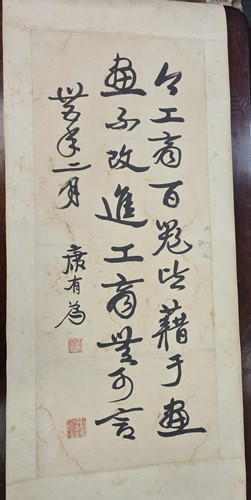 今工商百器皆藉于畫
畫不改進工商無可言
年二月
康有為